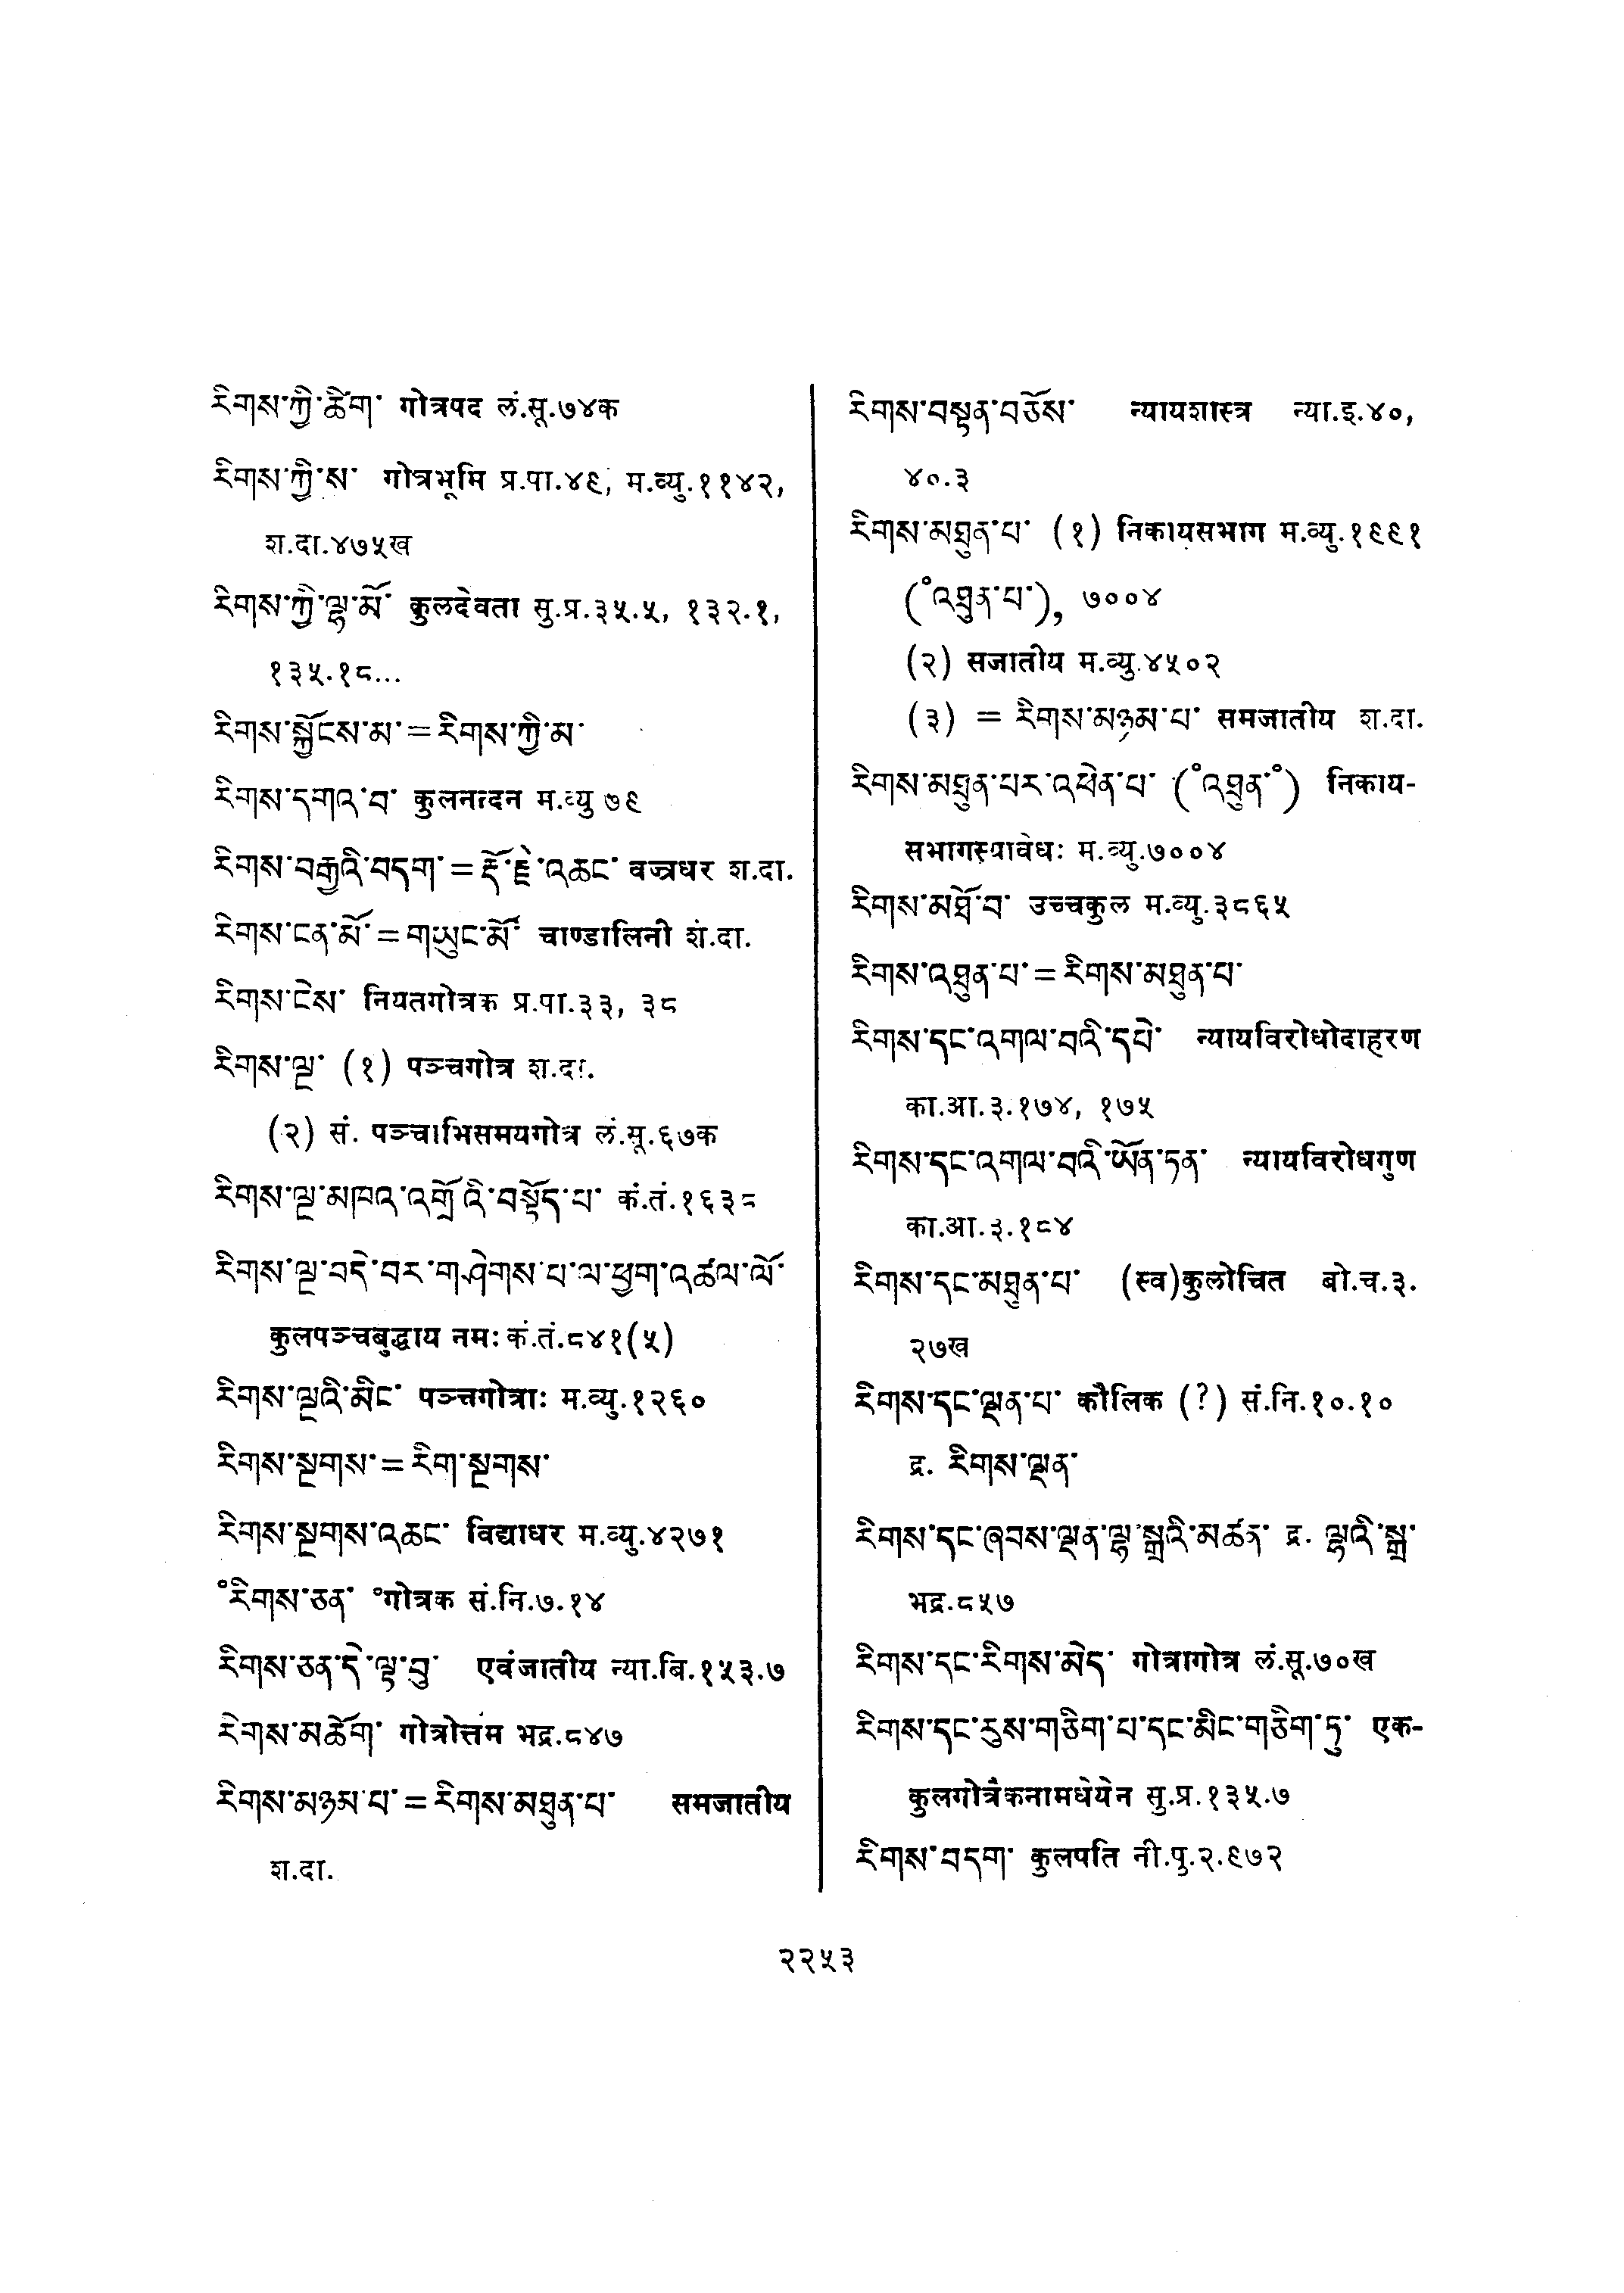 རིགས་ཀྱི་ཚིག་ गोत्रपद लं.सू.७४क
རིགས་ཀྱི་ས་ गोत्रभूमि प्र.पा.४९, म.व्यु.११४२,
श.दा.४७५ख
རིགས་ཀྱི་ལྷ་མོ་ कुलदेवता सु.प्र.३५.५, १३२.१,
१३५.१८...
རིགས་སྐྱོངས་མ་=རིགས་ཀྱི་མ་
རིགས་དགའ་བ་ कुलनन्दन म.व्यु ७९
རིགས་བརྒྱའི་བདག་=རྡོ་རྗེ་འཆང་ वज्रधर श.दा.
རིགས་ངན་མོ་=གཡུང་མོ་ चाण्डालिनी श.दा.
རིགས་ངེས་ नियतगोत्रक प्र.पा.३३, ३८
རིགས་ལྔ་ (१) पञ्चगोत्र श.दा.
(२) सं. पञ्चाभिसमयगोत्र लं.सू.६७क
རིགས་ལྔ་མཁའ་འགྲོའི་བསྟོད་པ་ कं.तं.१६३८
རིགས་ལྔ་བདེ་བར་གཤེགས་པ་ལ་ཕྱག་འཚལ་ལོ་
कुलपञ्चबुद्धाय नमः कं.तं.८४१(५)
རིགས་ལྔའི་མིང་ पञ्चगोत्राः म.व्यु.१२६०
རིགས་སྔགས་=རིག་སྔགས་
རིགས་སྔགས་འཆང་ विद्याधर म.व्यु.४२७१
°རིགས་ཅན་ °गोत्रक सं.नि.७.१४
རིགས་ཅན་དེ་ལྟ་བུ་ एवंजातीय न्या.बि.१५३.७
རིགས་མཆོག་ गोत्रोत्तम भद्र.८४७
རིགས་མཉམ་པ་=རིགས་མཐུན་པ་ समजातीय
श.दा.
རིགས་བསྟན་བཅོས་ न्यायशास्त्र न्या.इ.४०,
४०.३
རིགས་མཐུན་པ་ (१) निकायसभाग म.व्यु.१९९१
(°འཐུན་པ་), ७००४
(२) सजातीय म.व्यु.४५०२
(३) = རིགས་མཉམ་པ་ समजातीय श.दा.
རིགས་མཐུན་པར་འཕེན་པ་ (°འཐུན་°) निकाय-
सभागस्यावेधः म.व्यु.७००४
རིགས་མཐོ་བ་ उच्चकुल म.व्यु.३८६५
རིགས་འཐུན་པ་=རིགས་མཐུན་པ་
རིགས་དང་འགལ་བའི་དཔེ་ न्यायविरोधोदाहरण
का.आ.३.१७४, १७५
རིགས་དང་འགལ་བའི་ཡོན་ཏན་ न्यायविरोधगुण
का.आ.३.१८४
རིགས་དང་མཐུན་པ་ (स्व)कुलोचित बो.च.३.
२७ख
རིགས་དང་ལྡན་པ་ कौलिक (?) सं.नि.१०.१०
द्र. རིགས་ལྡན་
རིགས་དང་ཞབས་ལྡན་ལྷ་སྒྲའི་མཚན་ द्र. ལྷའི་སྒྲ་
भद्र.८५७
རིགས་དང་རིགས་མེད་ गोत्रागोत्र लं.सू.७०ख
རིགས་དང་རུས་གཅིག་པ་དང་མིང་གཅིག་ཏུ་ एक-
कुलगोत्रैकनामधेयेन सु.प्र.१३५.७
རིགས་བདག་ कुलपति नी.पु.२.९७२
२२५३